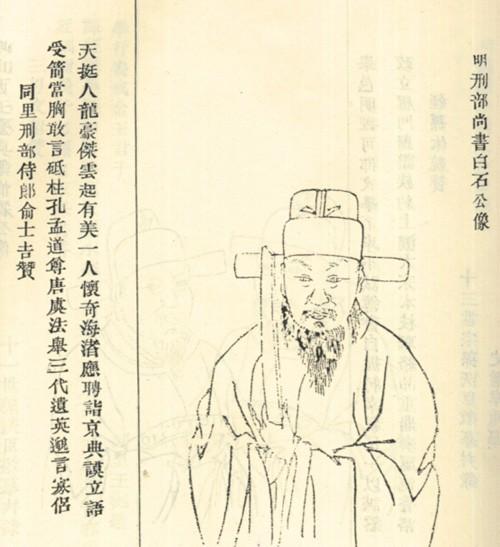 明刑部尚書白石公像
天挺人龍豪傑雲起有美一人懷奇海渚應聘詣京典謨立語
受箭當胸敢言砥柱孔孟道尊唐虞法舉三代遺英邈言寡侶
同里刑部侍郎俞士吉贊